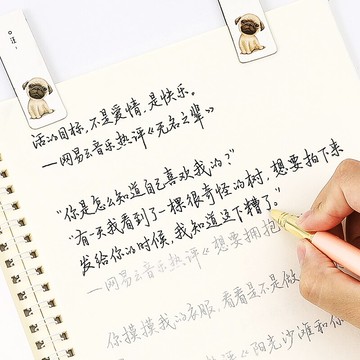 活的目标,不是爱情,是快乐。
——网易云音乐热评《无名之辈》
"你是怎么知道自己喜欢我的?"
"有一天我看到了一棵很奇怪的树,想要拍下来
发给你的时候,我知道这下糟了。"
——网易云音乐热评《想要拥抱
你摸摸我的衣服,看看是不是做
——网易云音乐热评《阳光沙滩和你